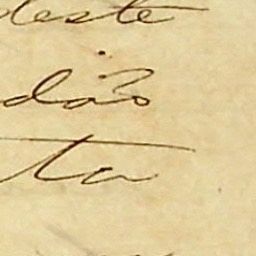 deste
dão
ta